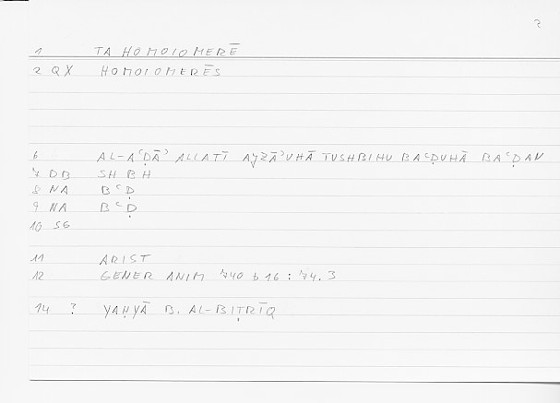 ?
1 TA HOMOIOMERĒ
2 QX HOMOIOMERĒS
6 AL-AʿḌĀʾ ALLATĪ AǧZĀʾUHĀ TUSHBIHU BAʿḌUHĀ BAʿḌAN
7 DB SH B H
8 NA B ʿ Ḍ
9 NA B ʿ Ḍ
10 SG
11 ARIST
12 GENER ANIM 740 b 16 : 74.3
14 ? YAḤYĀ B. AL-BIṬRĪQ